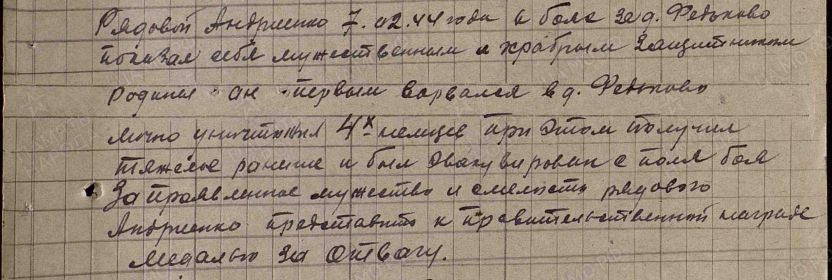 Рядовой Андриенко 7.02.44 года в бою за д. Федьково
показал себя мужественным и храбрым защитником
родины. он первым ворвался в д. Федьково
лично уничтожил 4х немцев при этом получил
тяжелое ранение и был эвакуирован с поля боя
За проявленное мужество и смелость рядового
Андриенко представить к правительственной награде
медалью За Отвагу.